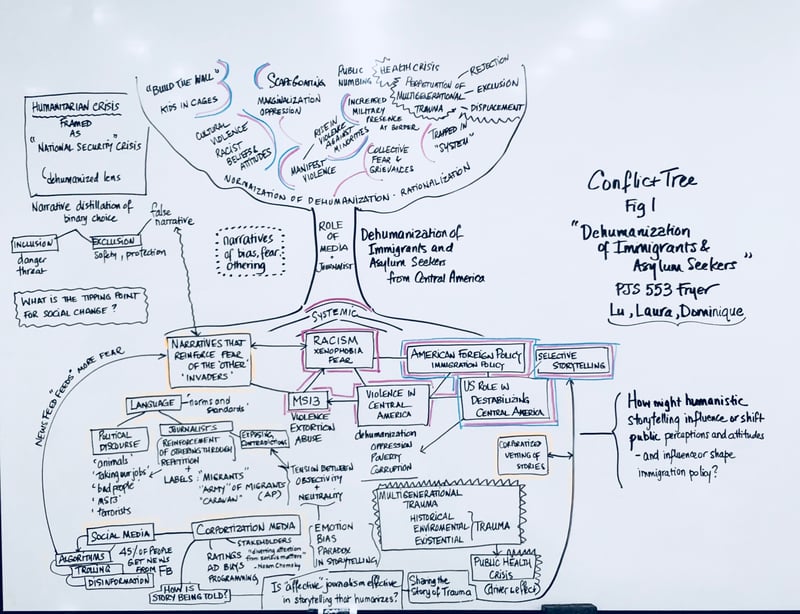 "BUILD THE WALL"
KIDS IN CAGES
SCAPEGOATING
MARGINALIZATION
OPPRESSION
PUBLIC
NUMBING
HEALTH CRISIS
PERPETUATION OF
MULTIGENERATIONAL
TRAUMA
REJECTION
EXCLUSION
DISPLACEMENT
CULTURAL
VIOLENCE
RACIST
BELIEFS &
ATTITUDES
RISE IN
VIOLENCE
AGAINST
MINORITIES
INCREASED
MILITARY
PRESENCE
AT BORDER
TRAPPED IN
"SYSTEM"
MANIFEST
VIOLENCE
COLLECTIVE
FEAR &
GRIEVANCES
NORMIZATION OF DEHUMANIZATION · RATIONALIZATION
HUMANITARIAN CRISIS
FRAMED
AS
"NATIONAL SECURITY" CRISIS
dehumanized lens
Narrative distillation of
binary choice
false
narrative
INCLUSION
danger
threat
EXCLUSION
safety, protection
WHAT IS THE TIPPING POINT
FOR SOCIAL CHANGE?
narratives
of bias, fear,
othering
ROLE
OF
MEDIA
+
JOURNALIST
Dehumanization of
Immigrants and
Asylum Seekers
from Central America
Conflict Tree
Fig 1
"Dehumanization
of Immigrants &
Asylum Seekers"
PJS 553 Fryer
Lu, Laura, Dominique
SYSTEMIC
NARRATIVES THAT
REINFORCE FEAR
OF THE 'OTHER'
'INVADERS'
RACISM
XENOPHOBIA
FEAR
AMERICAN FOREIGN POLICY
IMMIGRATION POLICY
SELECTIVE
STORYTELLING
US ROLE IN
DESTABILIZING
CENTRAL AMERICA
MS13
VIOLENCE
EXTORTION
ABUSE
VIOLENCE IN
CENTRAL
AMERICA
dehumanization
OPPRESSION
POVERTY
CORRUPTION
NEWS FEED "FEEDS" MORE FEAR
LANGUAGE
norms and
standards
POLITICAL
DISCOURSE
'animals'
'taking our jobs'
'bad people'
'MS13'
'terrorists'
JOURNALIST'S
REINFORCEMENT
OF OTHERING THROUGH
REPETITION
+
LABELS: "MIGRANTS"
"ARMY" OF MIGRANTS
"CARAVAN" (AP)
EXPOSING
CONTRADICTIONS
TENSION BETWEEN
OBJECTIVITY
+
NEUTRALITY
EMOTION
BIAS
PARADOX
IN STORYTELLING
CORPORATIZED
VETTING OF
STORIES
How might humanistic
storytelling influence or shift
public perceptions and attitudes
- and influence or shape
immigration policy?
MULTIGENERATIONAL
TRAUMA
HISTORICAL
ENVIROMENTAL
EXISTENTIAL
TRAUMA
PUBLIC HEALTH
CRISIS
SOCIAL MEDIA
ALGORITHMS
TROLLING
DISINFORMATION
45% OF PEOPLE
GET NEWS
FROM
FB
CORPORTIZATION MEDIA
STAKEHOLDERS
RATINGS
AD BUYS
PROGRAMMING
"diverting attention
from serious matters"
- Noam Chomsky
HOW IS
STORY BEING TOLD?
Is "affective" journalism effective
in storytelling that humanizes?
Sharing the
Story of Trauma